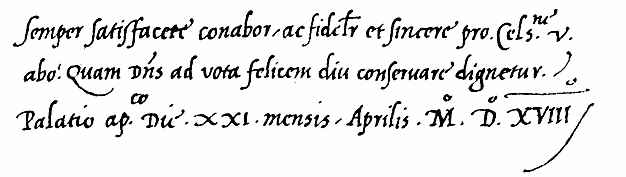 semper satisfacere conabor, ac fidelr et sincere pro. Cels.ne v.
abo: Quam Dñs ad vota felicem diu conservare dignetur.
Palatio ap.co Die. XXI. mensis, Aprilis. M.o D.o XVIII